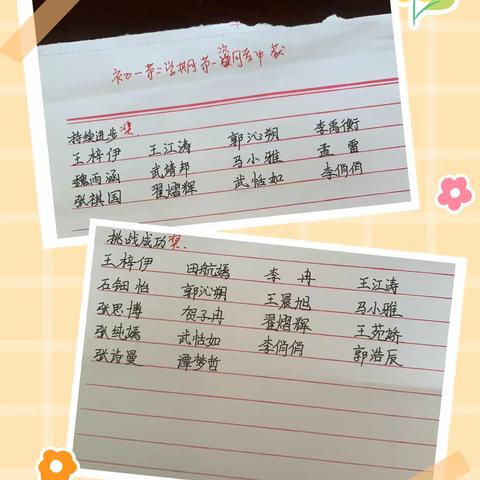 初一第二学期第一次月考中获
持续进步奖.
王梓伊 王江涛 郭沁朔 李禹衡
魏雨涵 武靖邦 马小雅 孟雷
张棋国 翟熠辉 武恬如 李俏俏
挑战成功奖.
王梓伊 田航嫣 李冉 王江涛
石钿怡 郭沁朔 王晨旭 马小雅
张思博 贺子冉 翟熠辉 王苑娇
张纯嫣 武恬如 李俏俏 郭浩辰
张诗曼 谭梦哲